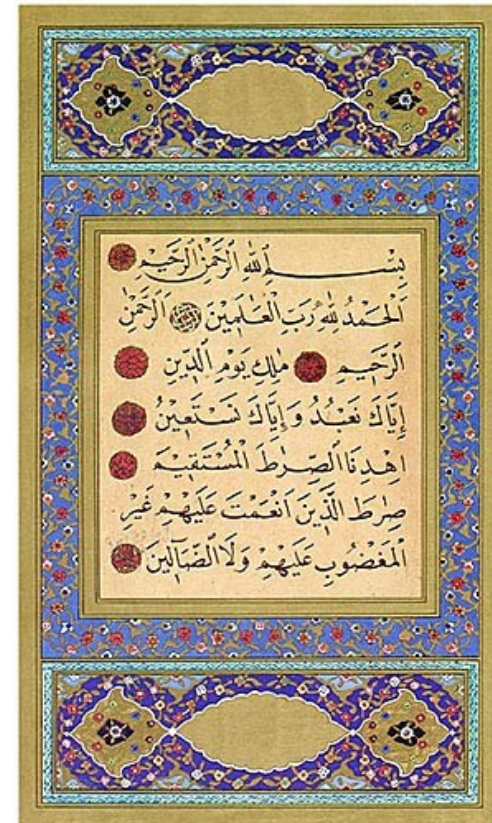 بِسْمِ اللهِ الرَّحْمٰنِ الرَّحٖيمِ
اَلْحَمْدُ لِلهِ رَبِّ الْعَالَمٖينَ الرَّحْمٰنِ
الرَّحٖيمِ مٰلِكِ يَوْمِ الدّٖينِ
اِيَّاكَ نَعْبُدُ وَاِيَّاكَ نَسْتَعٖينُ
اِهْدِنَا الصِّرَاطَ الْمُسْتَقٖيمَ
صِرَاطَ الَّذٖينَ اَنْعَمْتَ عَلَيْهِمْ غَيْرِ
الْمَغْضُوبِ عَلَيْهِمْ وَلَا الضَّٓالّٖينَ